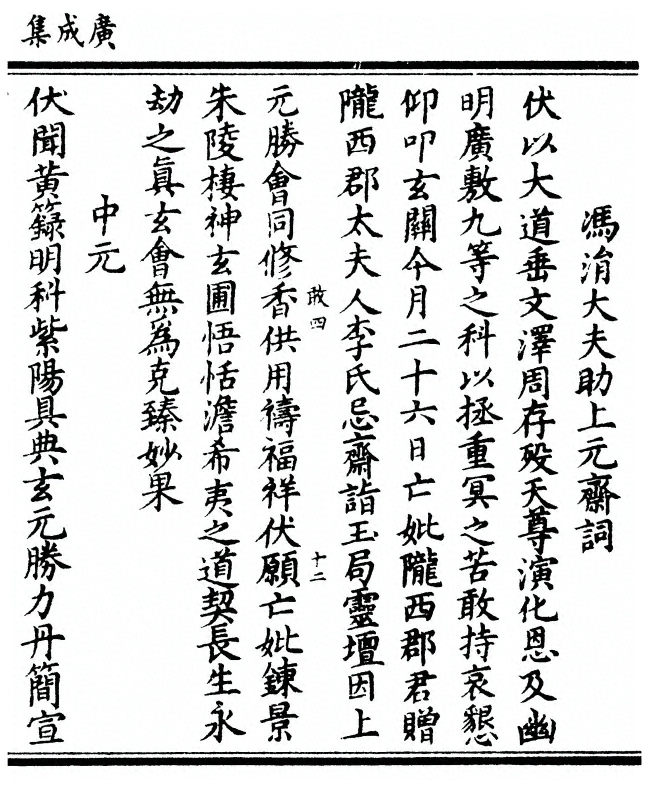 廣成集
馮涓大夫助上元齋詞
伏以大道垂文澤周存歿天尊演化恩及幽
明廣敷九等之科以拯重冥之苦敢持哀懇
仰叩玄關今月二十六日亡妣隴西郡君贈
隴西郡太夫人李氏忌齋詣玉局靈壇因上
元勝會同修香供用禱福祥伏願亡妣鍊景
敢四
十二
朱陵棲神玄圃悟恬澹希夷之道契長生永
劫之真玄會無為克臻妙果
中元
伏聞黃籙明科紫陽具典玄元勝力丹簡宣